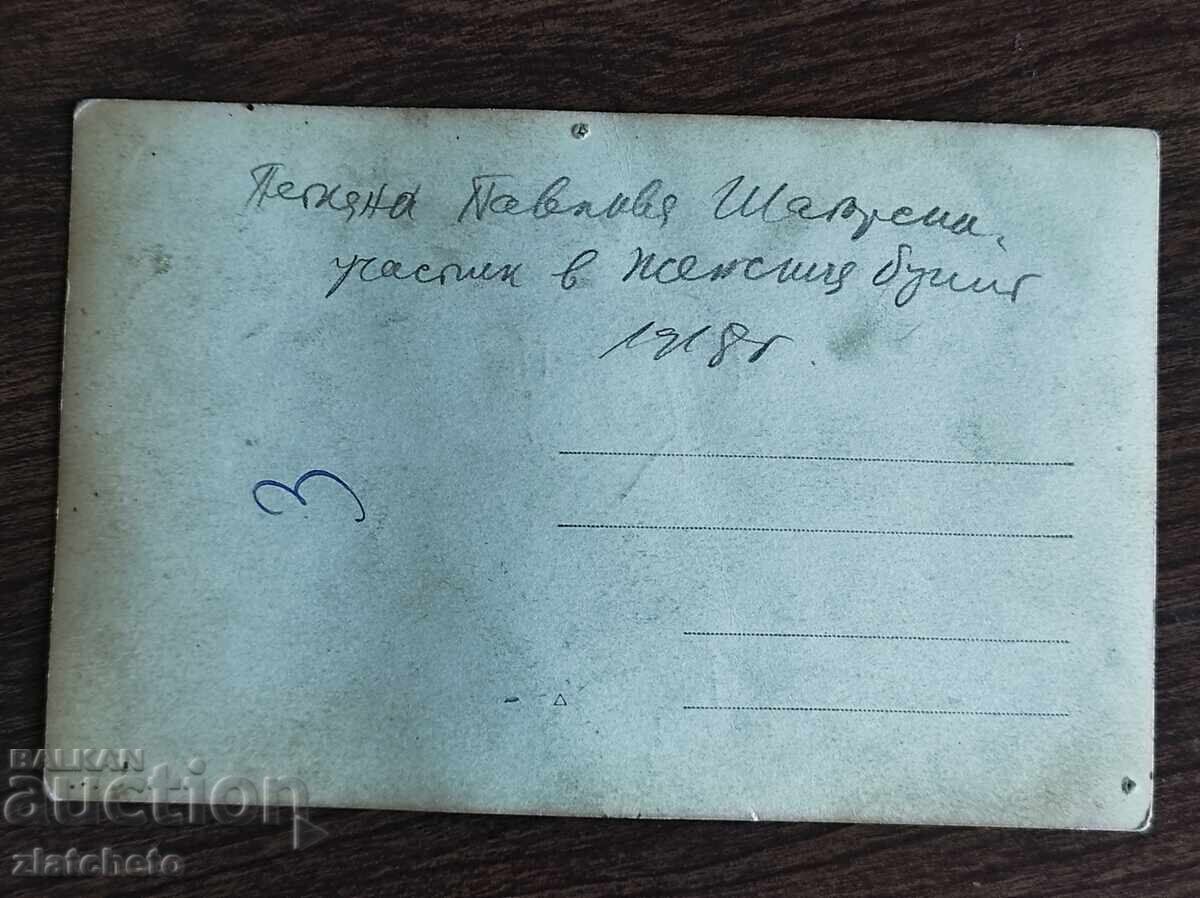 Павлова
участник в женския бунт
1918 г.
3
BALKAN
auction
zlatcheto